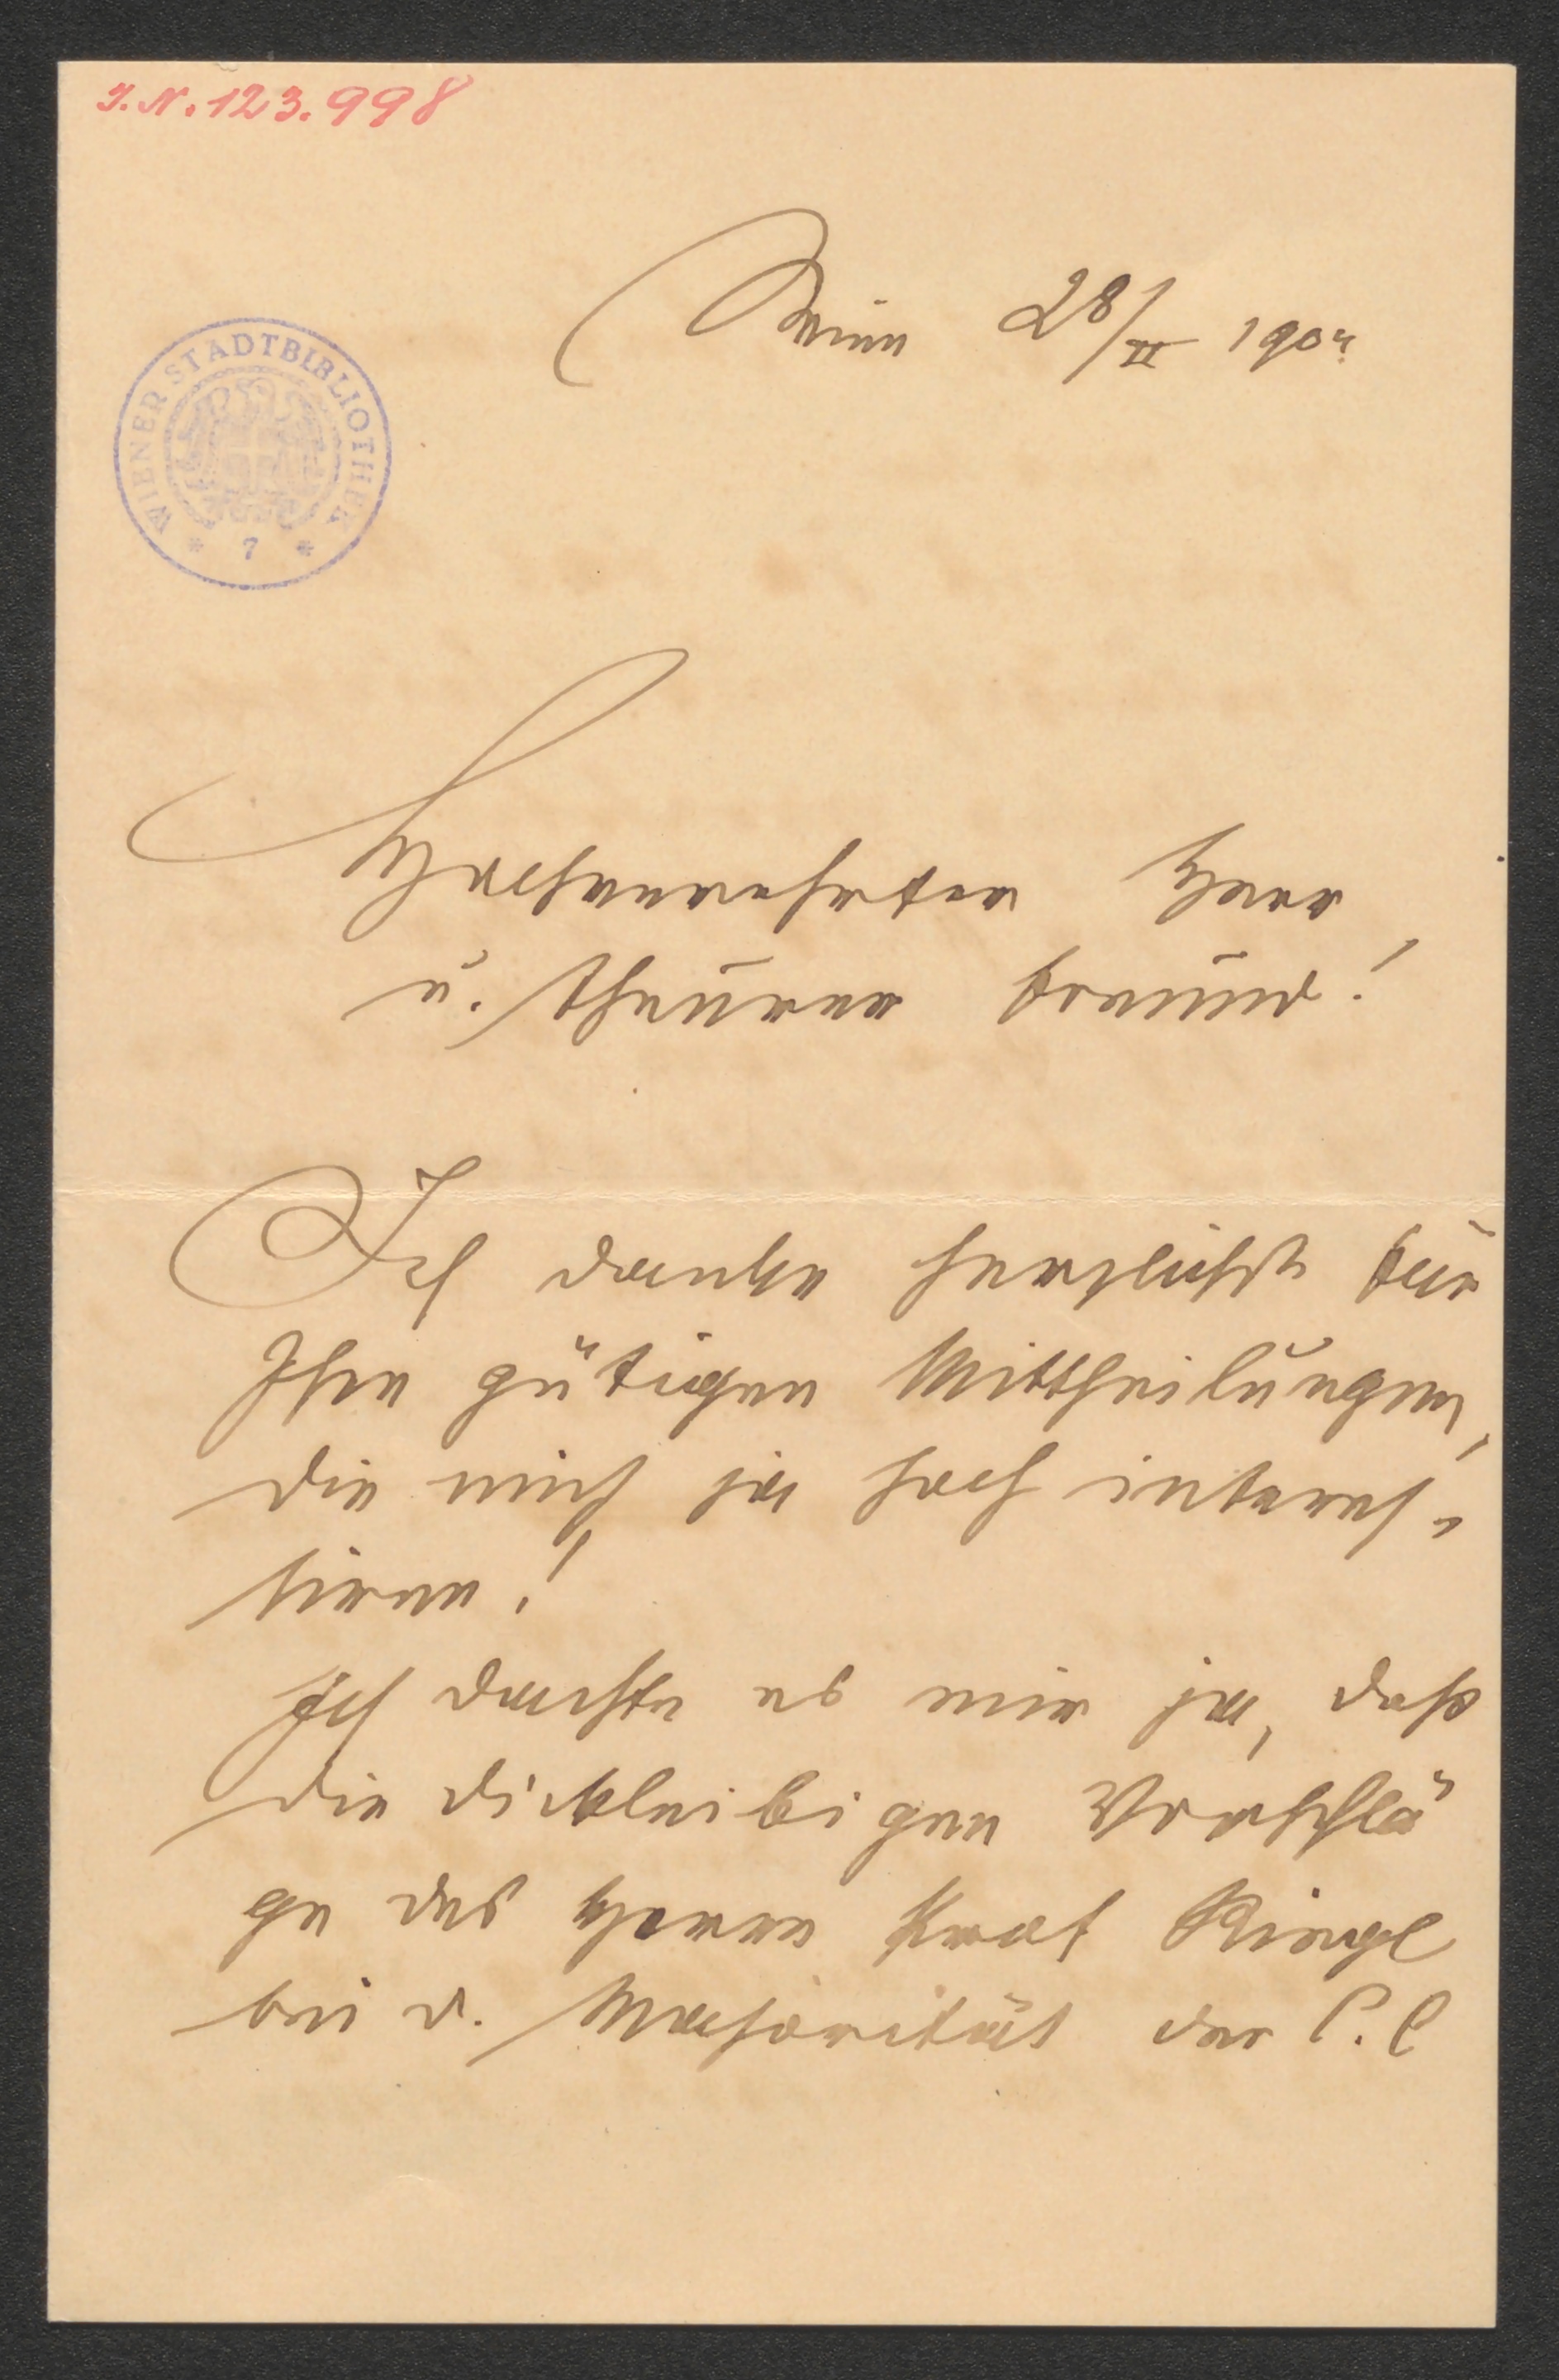 I. N. 123.998
WIENER STADTBIBLIOTHEK
* 7 *
Wien 28/II 190
Hochverehrter Herr
u. theurer Freund!
Ich danke herzlichst für
Ihre gütigen Mittheilungen,
die mich ja hoch interes-
siren!
Ich dachte es mir ja, daß
die dickleibigen Vorschlä
ge des Herrn Prof Riegl
bei d. Majorität der C. C